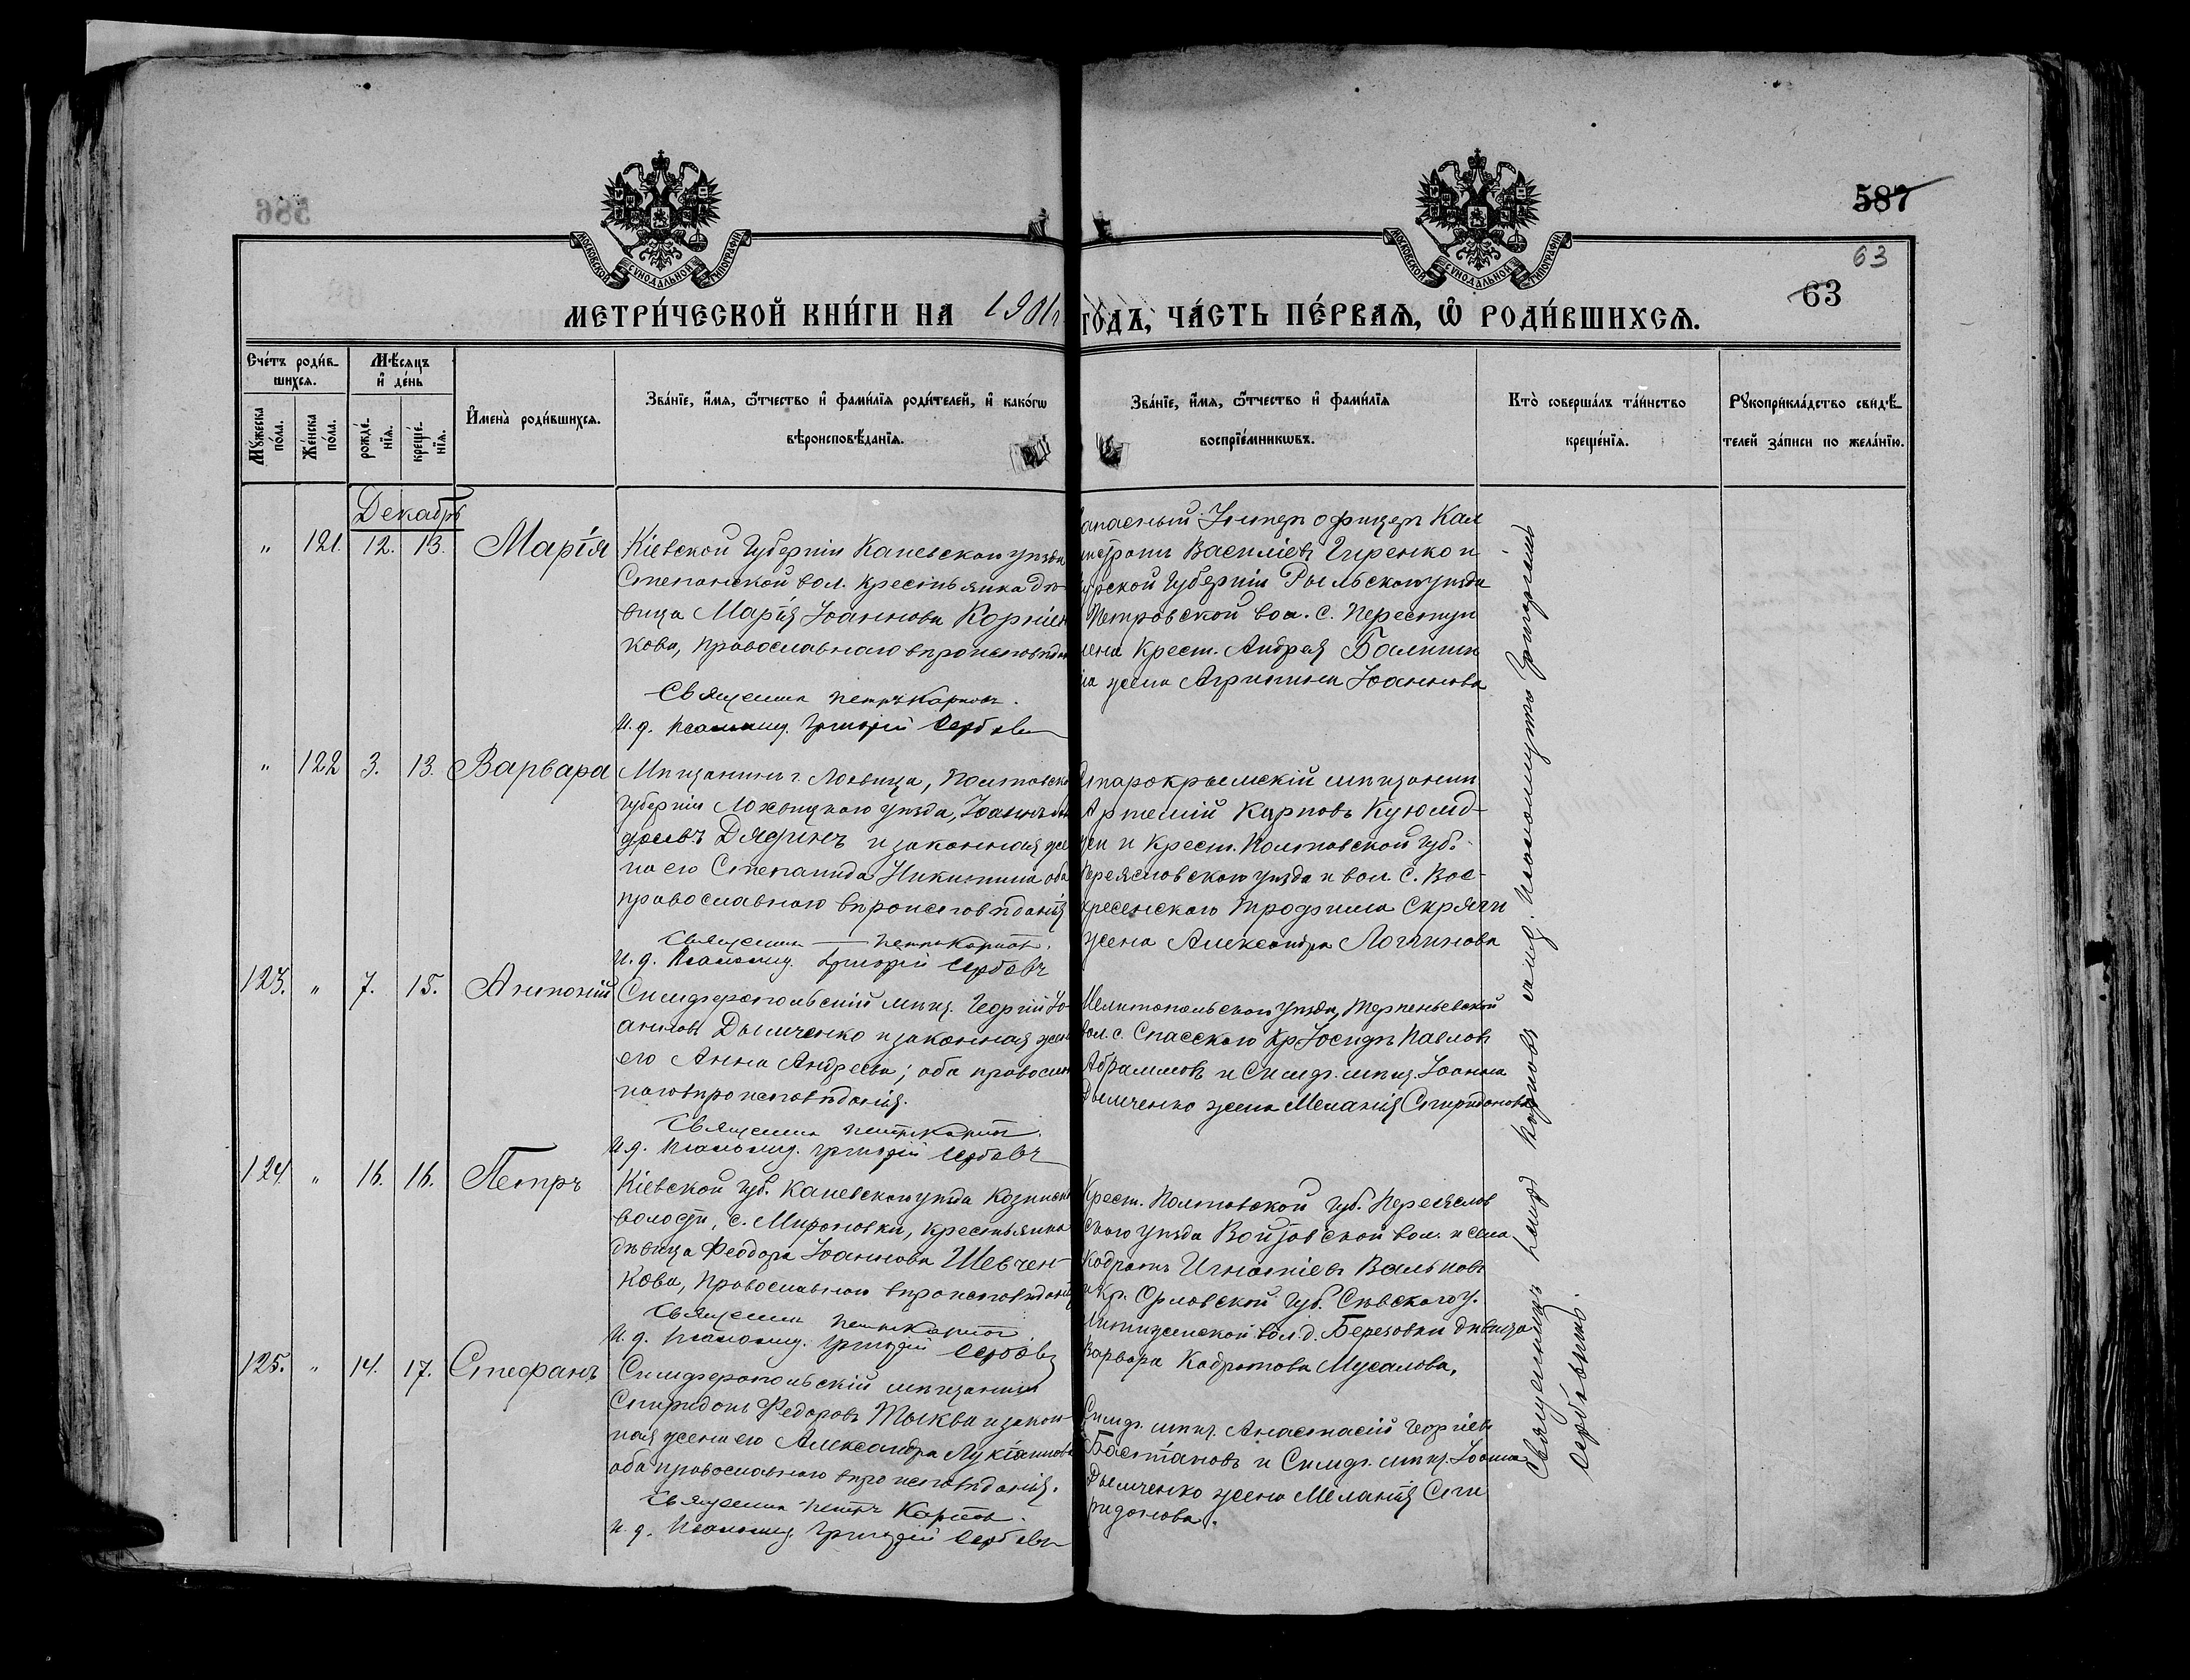 586
587
63
63
МОСКОВСКОЙ СѴНОДАЛЬНОЙ ТИПОГРАФІИ
МОСКОВСКОЙ СѴНОДАЛЬНОЙ ТИПОГРАФІИ
МЕТРИ́ЧЕСКОЙ КНИ́ГИ НА 1901 г. ГО́ДЪ, ЧА́СТЬ ПЕ́РВАѦ, Ѡ҆ РОДИ́ВШИХСѦ.
Сче́тъ роди́в-
шихсѧ.
Мѣ́сѧцъ
и҆ де́нь
Мꙋ́жеска по́ла.
Же́нска по́ла.
рожде́-
нїѧ.
креще́-
нїѧ.
И҆мена̀ роди́вшихсѧ.
Зва́нїе, и҆́мѧ, ѻ҆́тчество и҆ фами́лїѧ роди́телей, и҆ како́гѡ
вѣроисповѣ́данїѧ.
Зва́нїе, и҆́мѧ, ѻ҆́тчество и҆ фами́лїѧ
воспрїе́мникѡвъ.
Кто̀ соверша́лъ та́инство
креще́нїѧ.
Рꙋкоприкла́дство свидѣ́-
телей за́писи по жела́нїю.
Декабрь
" 121. 12. 13. Марія
Кіевской Губерніи Каневскаго уѣзда
Степанской вол. крестьянка дѣ-
вица Марія Іоаннова Корніен
кова, православнаго вѣроисповѣдан
Священник Петръ Карпов.
И. д. Псаломщ. Григорій Сербовъ
Запасный Унтер офицер Кал
истратъ Васильевъ Гиренко и
Курской Губерніи Рыльскаго уѣзда
Петровской вол. с.
Крест. Андрея
жена Агрипина Іоаннова
" 122 3. 13. Варвара
Мѣщанинъ г. Лохвица, Полтавской
губерніи Лохвицкаго уѣзда, Іоаннъ
Дядинъ и законная же
на его Степанида Никитина оба
православнаго вѣроисповѣданія
Священник Петръ Карпов.
И. д. Псаломщ. Григорій Сербовъ
Старокрымскій мѣщанин
Артемій Карповъ Куюмд-
жи и Крест. Полтавской губ.
Переяславскаго уѣзда и вол. с. Вос-
кресенскаго Трофима Скряги
жена Александра Логинова
123. " 7. 15. Антоній
Симферопольскій мѣщ. Георгій Іо-
анновъ Дымченко и законная жена
его Анна Андреева; оба православ
наго вѣроисповѣданія.
Священник Петръ Карпов.
И д. Псаломщ. Григорій Сербовъ
Мелитопольскаго уѣзда, Терпеньевской
вол. с. Спасскаго Кр Іосифъ Павлов
Абрамовъ и Симф. мѣщ. Іоанна
Дымченко жена Меланія Спиридонова
124. " 16. 16. Петръ
Кіевской губ. Каневскаго уѣзда Козинской
волости, с. Мироновки, крестьянка
дѣвица Феодора Іоаннова Шевчен-
кова, православнаго вѣроисповѣданія
Священник Петръ Карпов
И. д. Псаломщ. Григорій Сербовъ
Крест. Полтавской губ. Переяслов
скаго уѣзда Войтовской вол. и села
Кодратъ Игнатіевъ Вальковъ
и Кр. Орловской губ. Сѣвскаго у.
вол. д. Березовки дѣвица
Варвара Кодратова Мусалова.
125. " 14. 17. Стефанъ
Симферопольскій мѣщанинъ
Спиридонъ Федоровъ Тыква и закон-
ная жена его Александра Лукіанова
оба православнаго вѣроисповѣданія.
Священник Петръ Карпов.
И. д. Псаломщ. Григорій Сербовъ
Симф. мѣщ. Анастасій Георгіевъ
Бастановъ и Симф. мѣщ. Іоанна
Дымченко жена Меланія Спи
ридонова.
Священникъ Петръ Карповъ съ и. д. Псаломщика Григоріемъ
Сербовымъ.